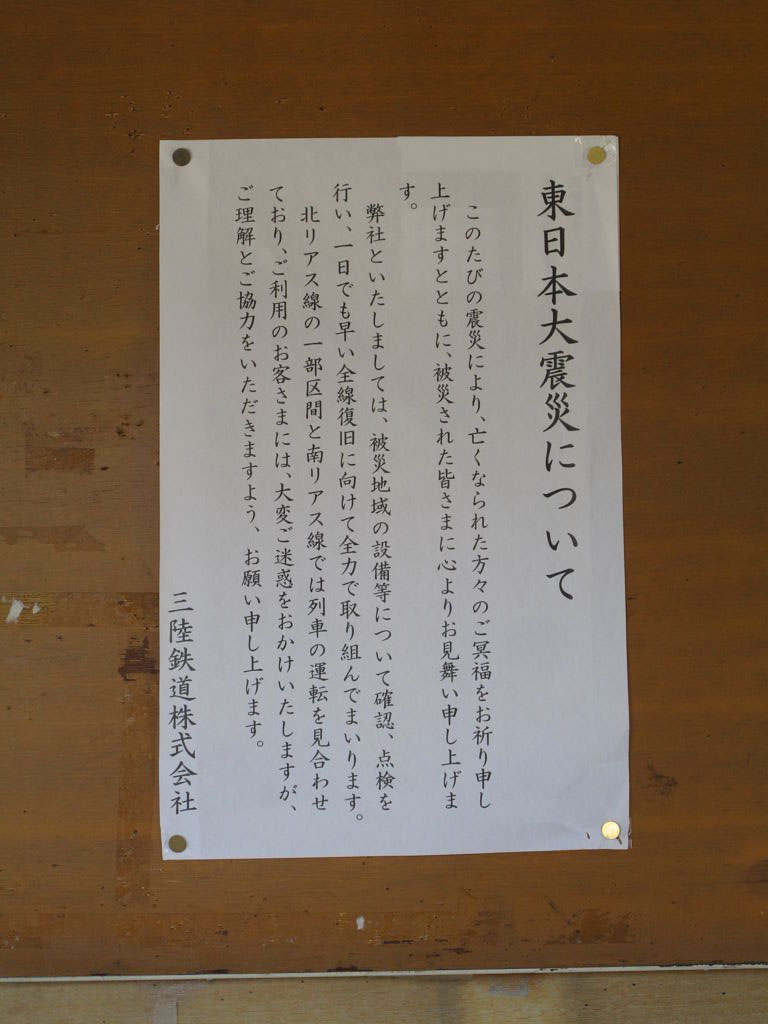 東日本大震災について
このたびの震災により、亡くなられた方々のご冥福をお祈り申し
上げますとともに、被災された皆さまに心よりお見舞い申し上げま
す。
弊社といたしましては、被災地域の設備等について確認、点検を
行い、一日でも早い全線復旧に向けて全力で取り組んでまいります。
北リアス線の一部区間と南リアス線では列車の運転を見合わせ
ており、ご利用のお客さまには、大変ご迷惑をおかけいたしますが、
ご理解とご協力をいただきますよう、お願い申し上げます。
三陸鉄道株式会社